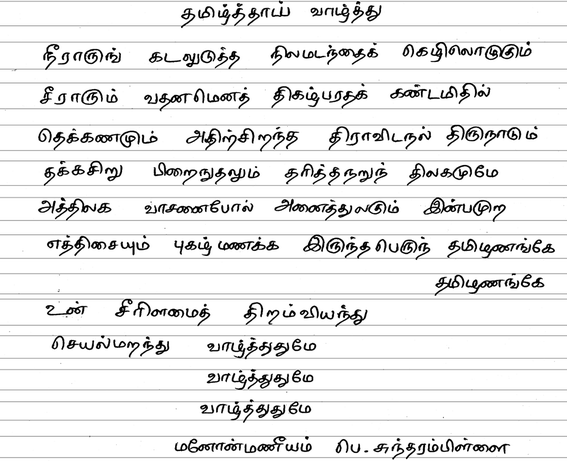 தமிழ்த்தாய் வாழ்த்து
நீராருங் கடலுடுத்த நிலமடந்தைக் கெழிலொழுகும்
சீராரும் வதனமெனத் திகழ்பரதக் கண்டமிதில்
தெக்கணமும் அதிற்சிறந்த திராவிடநல் திருநாடும்
தக்கசிறு பிறைநுதலும் தரித்தநறுந் திலகமுமே
அத்திலக வாசனைபோல் அனைத்துலகும் இன்பமுற
எத்திசையும் புகழ்மணக்க இருந்தபெருந் தமிழணங்கே
தமிழணங்கே
உன் சீரிளமைத் திறம்வியந்து
செயல்மறந்து வாழ்த்துதுமே
வாழ்த்துதுமே
வாழ்த்துதுமே
மனோன்மணீயம் பெ. சுந்தரம்பிள்ளை